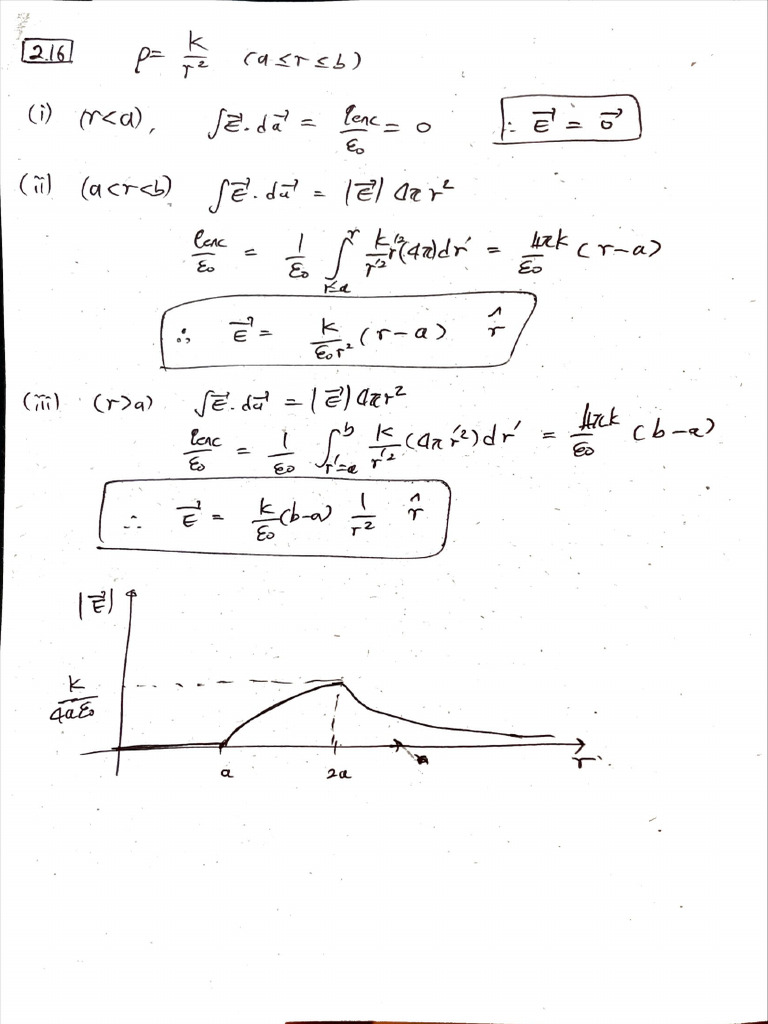 2.16 ρ= k/r² (a≤r≤b)
(i) (r<a), ∫E⃗.da⃗ = qenc/ε₀ = 0 ∴ E⃗ = 0⃗
(ii) (a<r<b) ∫E⃗.da⃗ = |E⃗| 4πr²
qenc/ε₀ = 1/ε₀ ∫_{r'=a}^{r} k/r'² r'²(4π)dr' = 4πk/ε₀ (r-a)
∴ E⃗ = k/ε₀r² (r-a) r̂
(iii) (r>a) ∫E⃗.da⃗ = |E⃗|4πr²
qenc/ε₀ = 1/ε₀ ∫_{r'=a}^{b} k/r'² (4πr'²)dr' = 4πk/ε₀ (b-a)
∴ E⃗ = k/ε₀ (b-a) 1/r² r̂
|E⃗|
k/4aε₀
a 2a r